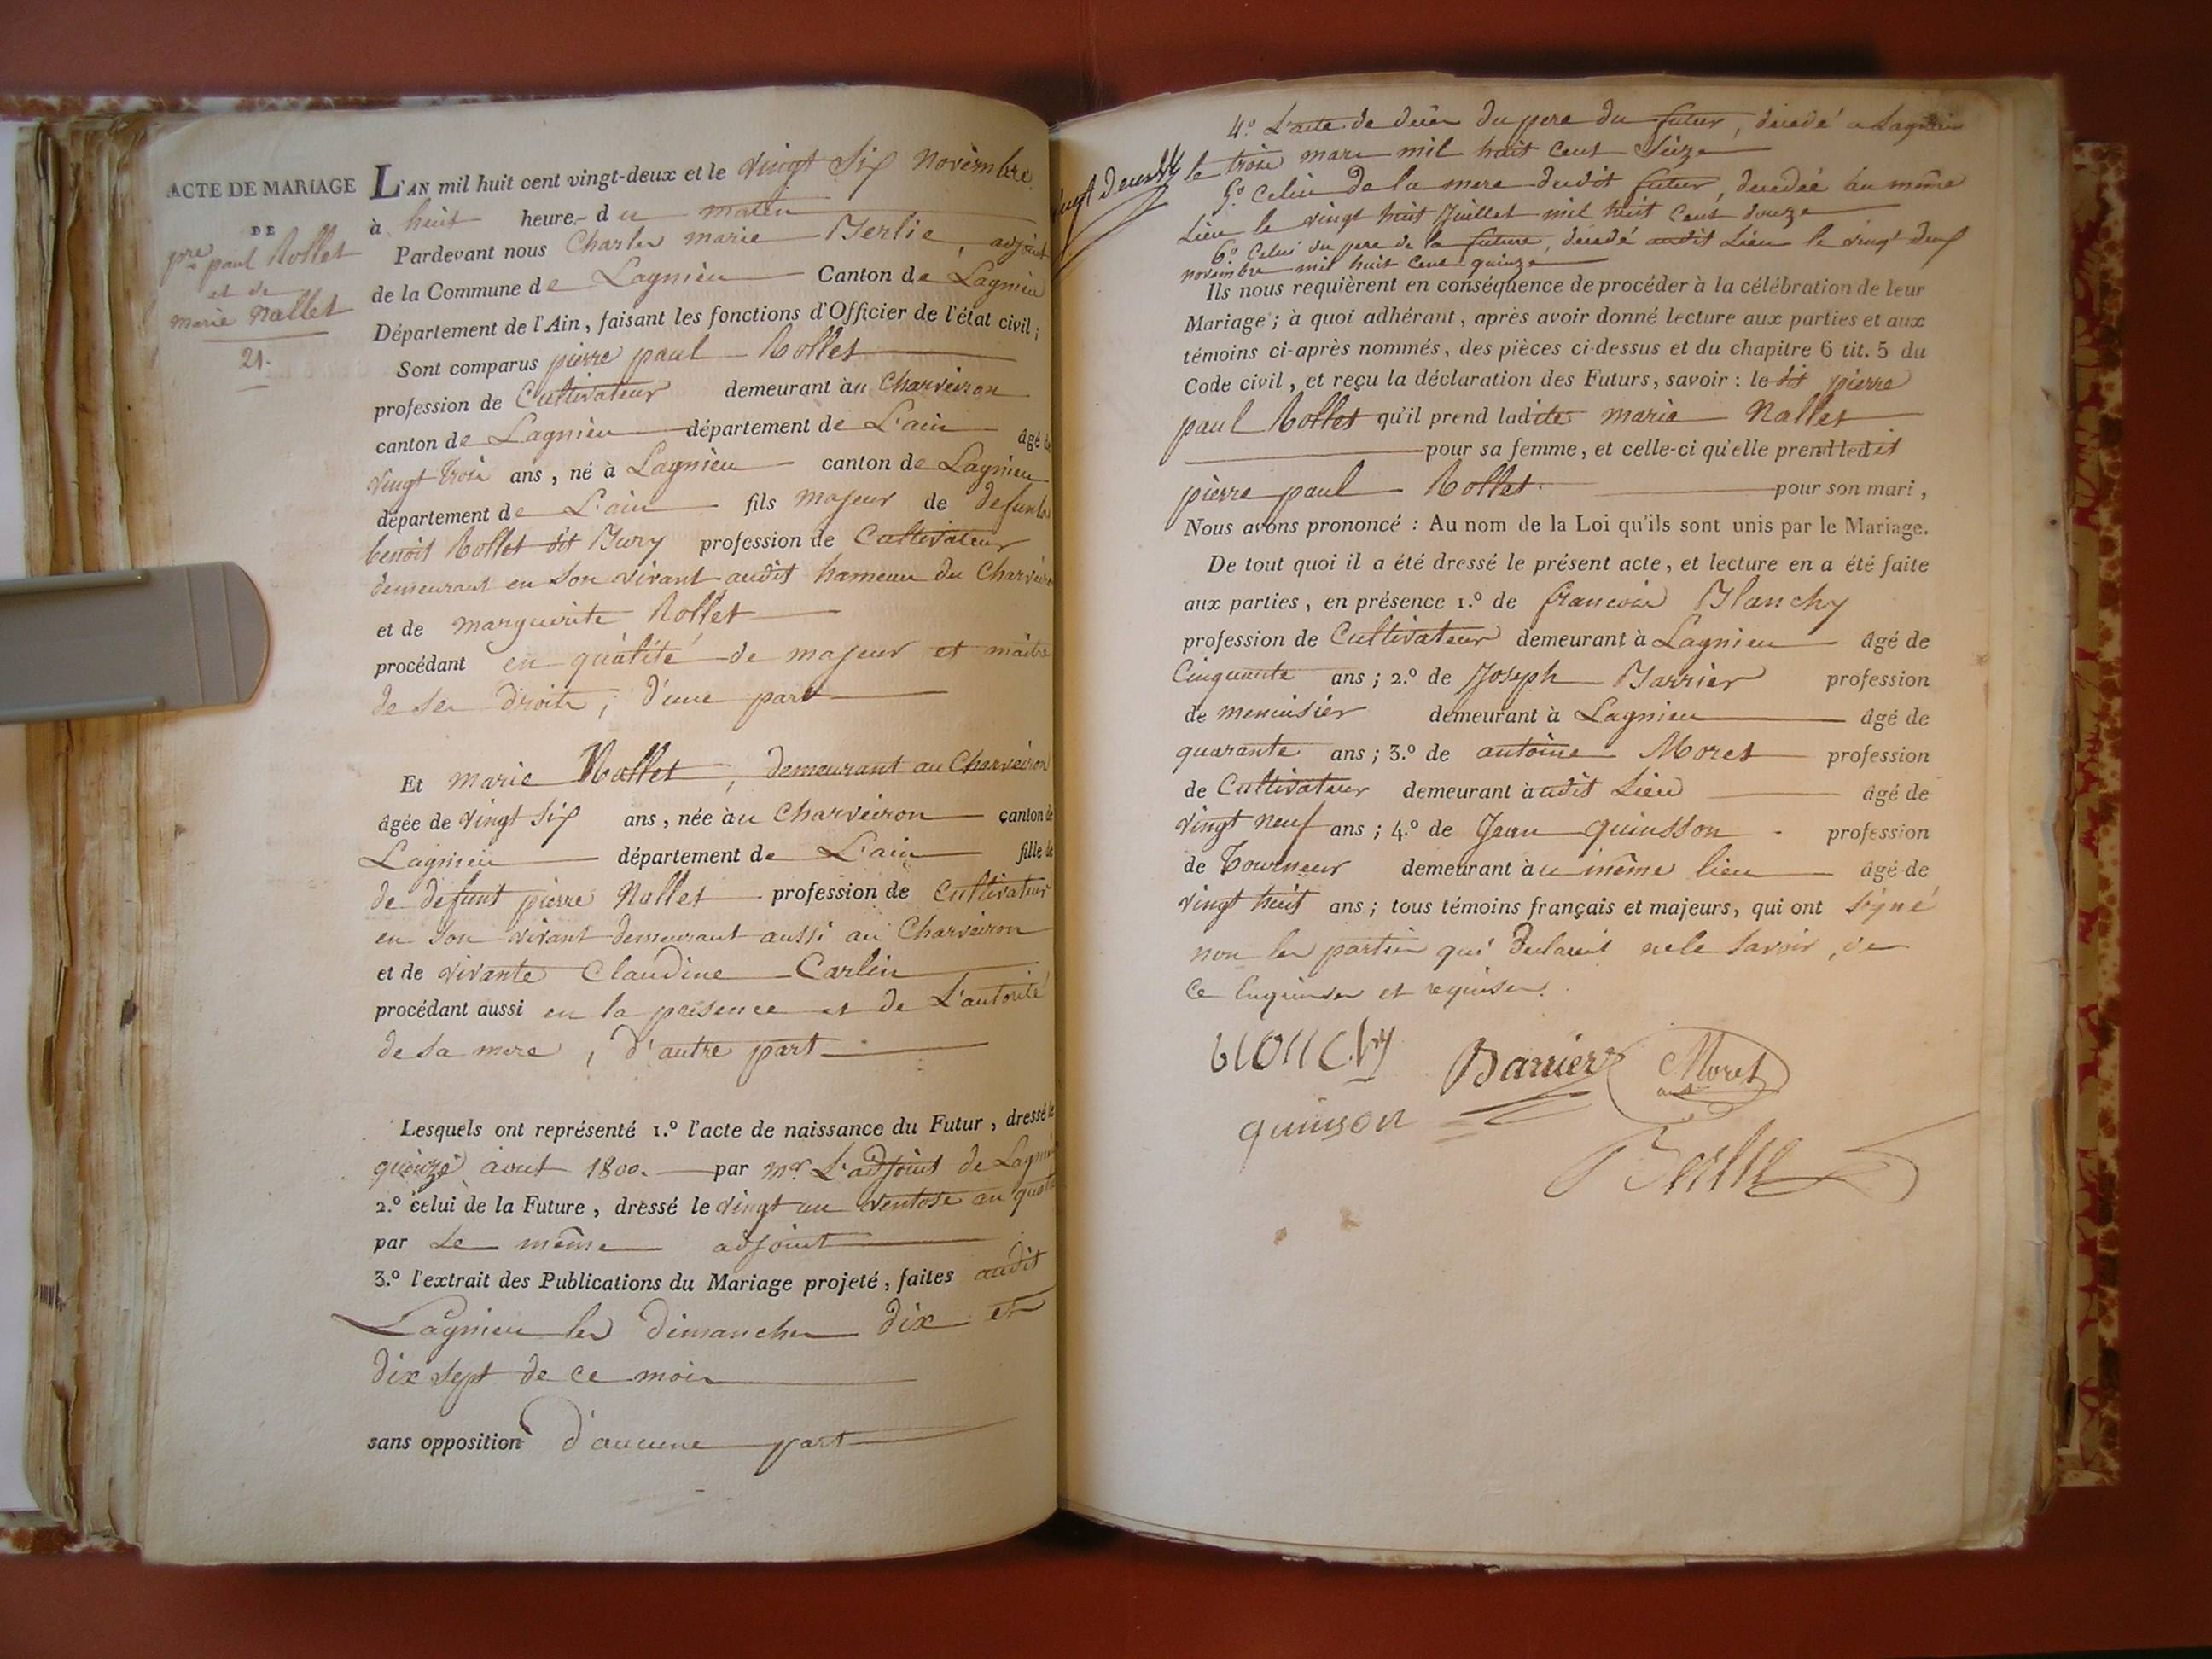 ACTE DE MARIAGE
DE
pre. paul Rollet
et de
marie Nallet
21.
L'AN mil huit cent vingt-deux et le vingt Six Novembre
à huit heure du matin
Pardevant nous Charles marie Berlie, adjoint
de la Commune de Lagnieu Canton de Lagnieu
Département de l'Ain, faisant les fonctions d'Officier de l'état civil;
Sont comparus pierre paul Rollet
profession de Cultivateur demeurant au Charveiron
canton de Lagnieu département de L'ain âgé de
vingt trois ans, né à Lagnieu canton de Lagnieu
département de L'ain fils majeur de defunts
benoit Rollet dit Jury profession de Cultivateur
demeurant en Son vivant audit hameau du Charveiron
et de marguerite Rollet
procédant en quálité de majeur et maitre
de ses droits, d'une part
Et marie Nallet, demeurant au Charveiron
âgée de vingt Six ans, née au Charveiron canton de
Lagnieu département de L'ain fille de
de defunt pierre Nallet profession de Cultivateur
en Son vivant demeurant aussi au Charveiron
et de vivante Claudine Carlin
procédant aussi en la présence et de L'autorité
de Sa mere, d'autre part
Lesquels ont représenté 1.º l'acte de naissance du Futur, dressé le
quinze avril 1800. par mr. L'adjoint de Lagnieu
2.º celui de la Future, dressé le vingt un ventose an quatre
par Le même adjoint
3.º l'extrait des Publications du Mariage projeté, faites audit
Lagnieu les dimanches dix et
dix Sept de ce mois
sans opposition d'aucune part
vingt deux
4.º L'acte de décès du pere du futur, décedé a Lagnieu
le trois mars mil huit cent Seize
5.º Celui de la mere dudit futur, decedée au même
Lieu le vingt huit Juillet mil huit Cent douze
6.º Celui du pere de la future, décedé audit Lieu le vingt deux
novembre mil huit cent quinze
Ils nous requièrent en conséquence de procéder à la célébration de leur
Mariage; à quoi adhérant, après avoir donné lecture aux parties et aux
témoins ci-après nommés, des pièces ci-dessus et du chapitre 6 tit. 5 du
Code civil, et reçu la déclaration des Futurs, savoir: le dit pierre
paul Rollet qu'il prend ladite marie Nallet
pour sa femme, et celle-ci qu'elle prend ledit
pierre paul Rollet. pour son mari,
Nous avons prononcé: Au nom de la Loi qu'ils sont unis par le Mariage.
De tout quoi il a été dressé le présent acte, et lecture en a été faite
aux parties, en présence 1.º de francois Blanchy
profession de Cultivateur demeurant à Lagnieu âgé de
Cinquante ans; 2.º de Joseph Barrier profession
de menuisier demeurant à Lagnieu âgé de
quarante ans; 3.º de antoine Moret profession
de Cultivateur demeurant audit Lieu âgé de
vingt neuf ans; 4.º de Jean quinsson profession
de Tourneur demeurant au même lieu âgé de
vingt huit ans; tous témoins français et majeurs, qui ont Signé
non les parties qui ne le Savoir, de
ce Enquises et requises.
blonchy Barrier Moret
quinson
Berlie